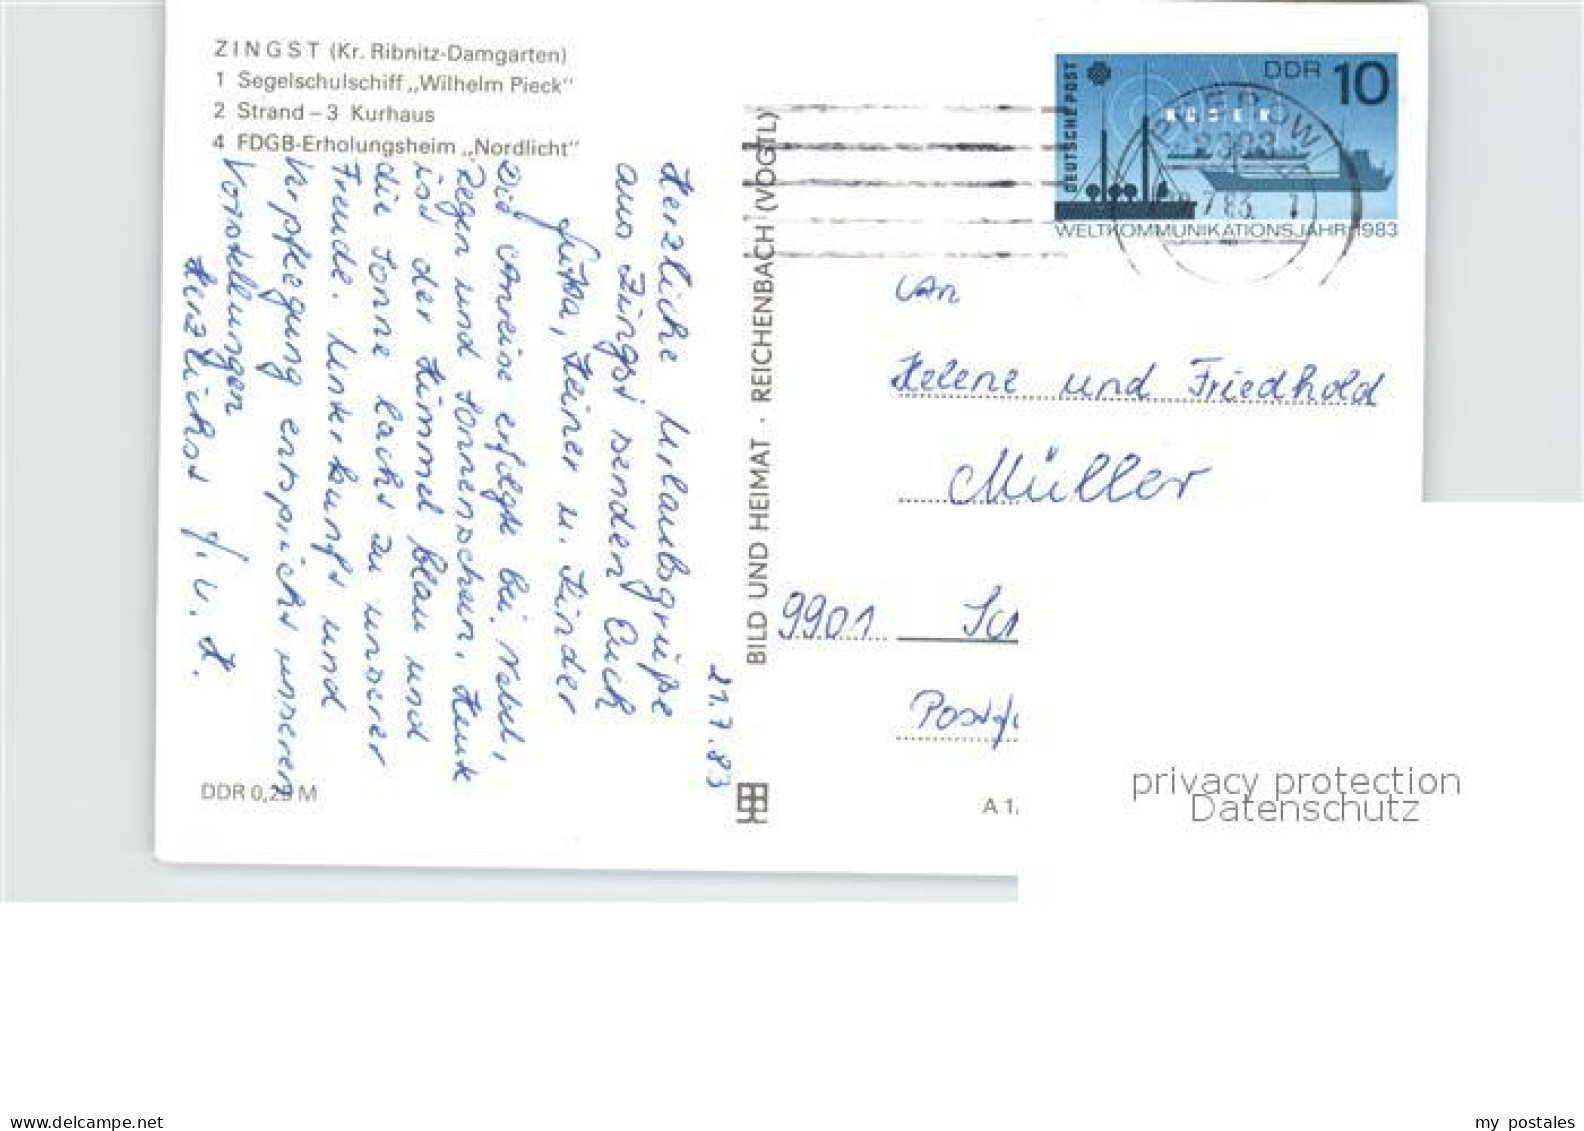 ZINGST (Kr. Ribnitz-Damgarten)
1 Segelschulschiff „Wilhelm Pieck“
2 Strand – 3 Kurhaus
4 FDGB-Erholungsheim „Nordlicht“
21.7.83
Herzliche Urlaubsgrüße
aus Zingst senden Euch
Jutta, Heiner u. Kinder
Die Anreise erfolgte bei Nebel,
Regen und Sonnenschein. Heute
ist der Himmel blau und
die Sonne lacht zu unserer
Freude. Unterkunft und
Verpflegung entspricht unseren
Vorstellungen
Herzlichst J. u. H.
DDR 0,25 M
BILD UND HEIMAT · REICHENBACH (VOGTL)
DEUTSCHE POST
DDR 10
RÜGEN
WELTKOMMUNIKATIONSJAHR 1983
PREROW
2383
7 83
An
Helene und Friedhold
Müller
9901 Sch
Postf
A 1
privacy protection
Datenschutz
www.delcampe.net
my postales